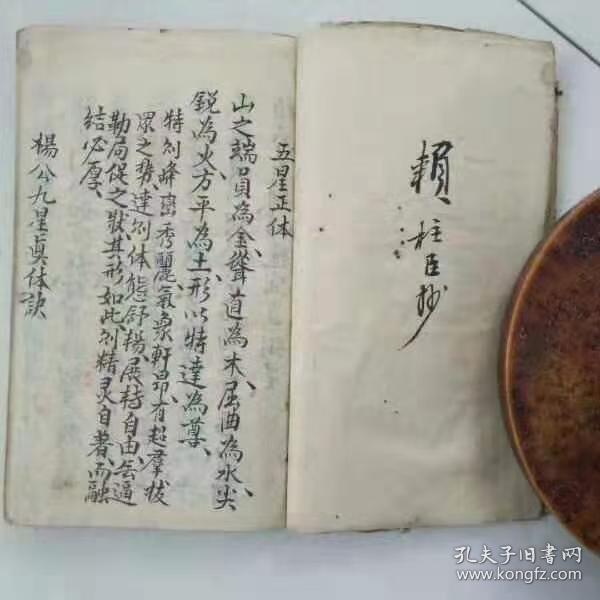 賴柱臣抄
五星正体
山之端員為金、聳直為木、屈曲為水、尖
鋭為火、方平為土、形以特達為尊、
特則峰巒秀麗、氣象軒昂、有超羣拔
眾之勢、達則体態舒楊、展轉自由、無逼
勒局促之狀、其形如此、則精灵自著、而融
結必厚、
楊公九星真体訣
孔夫子旧書网
www.kongfz.com